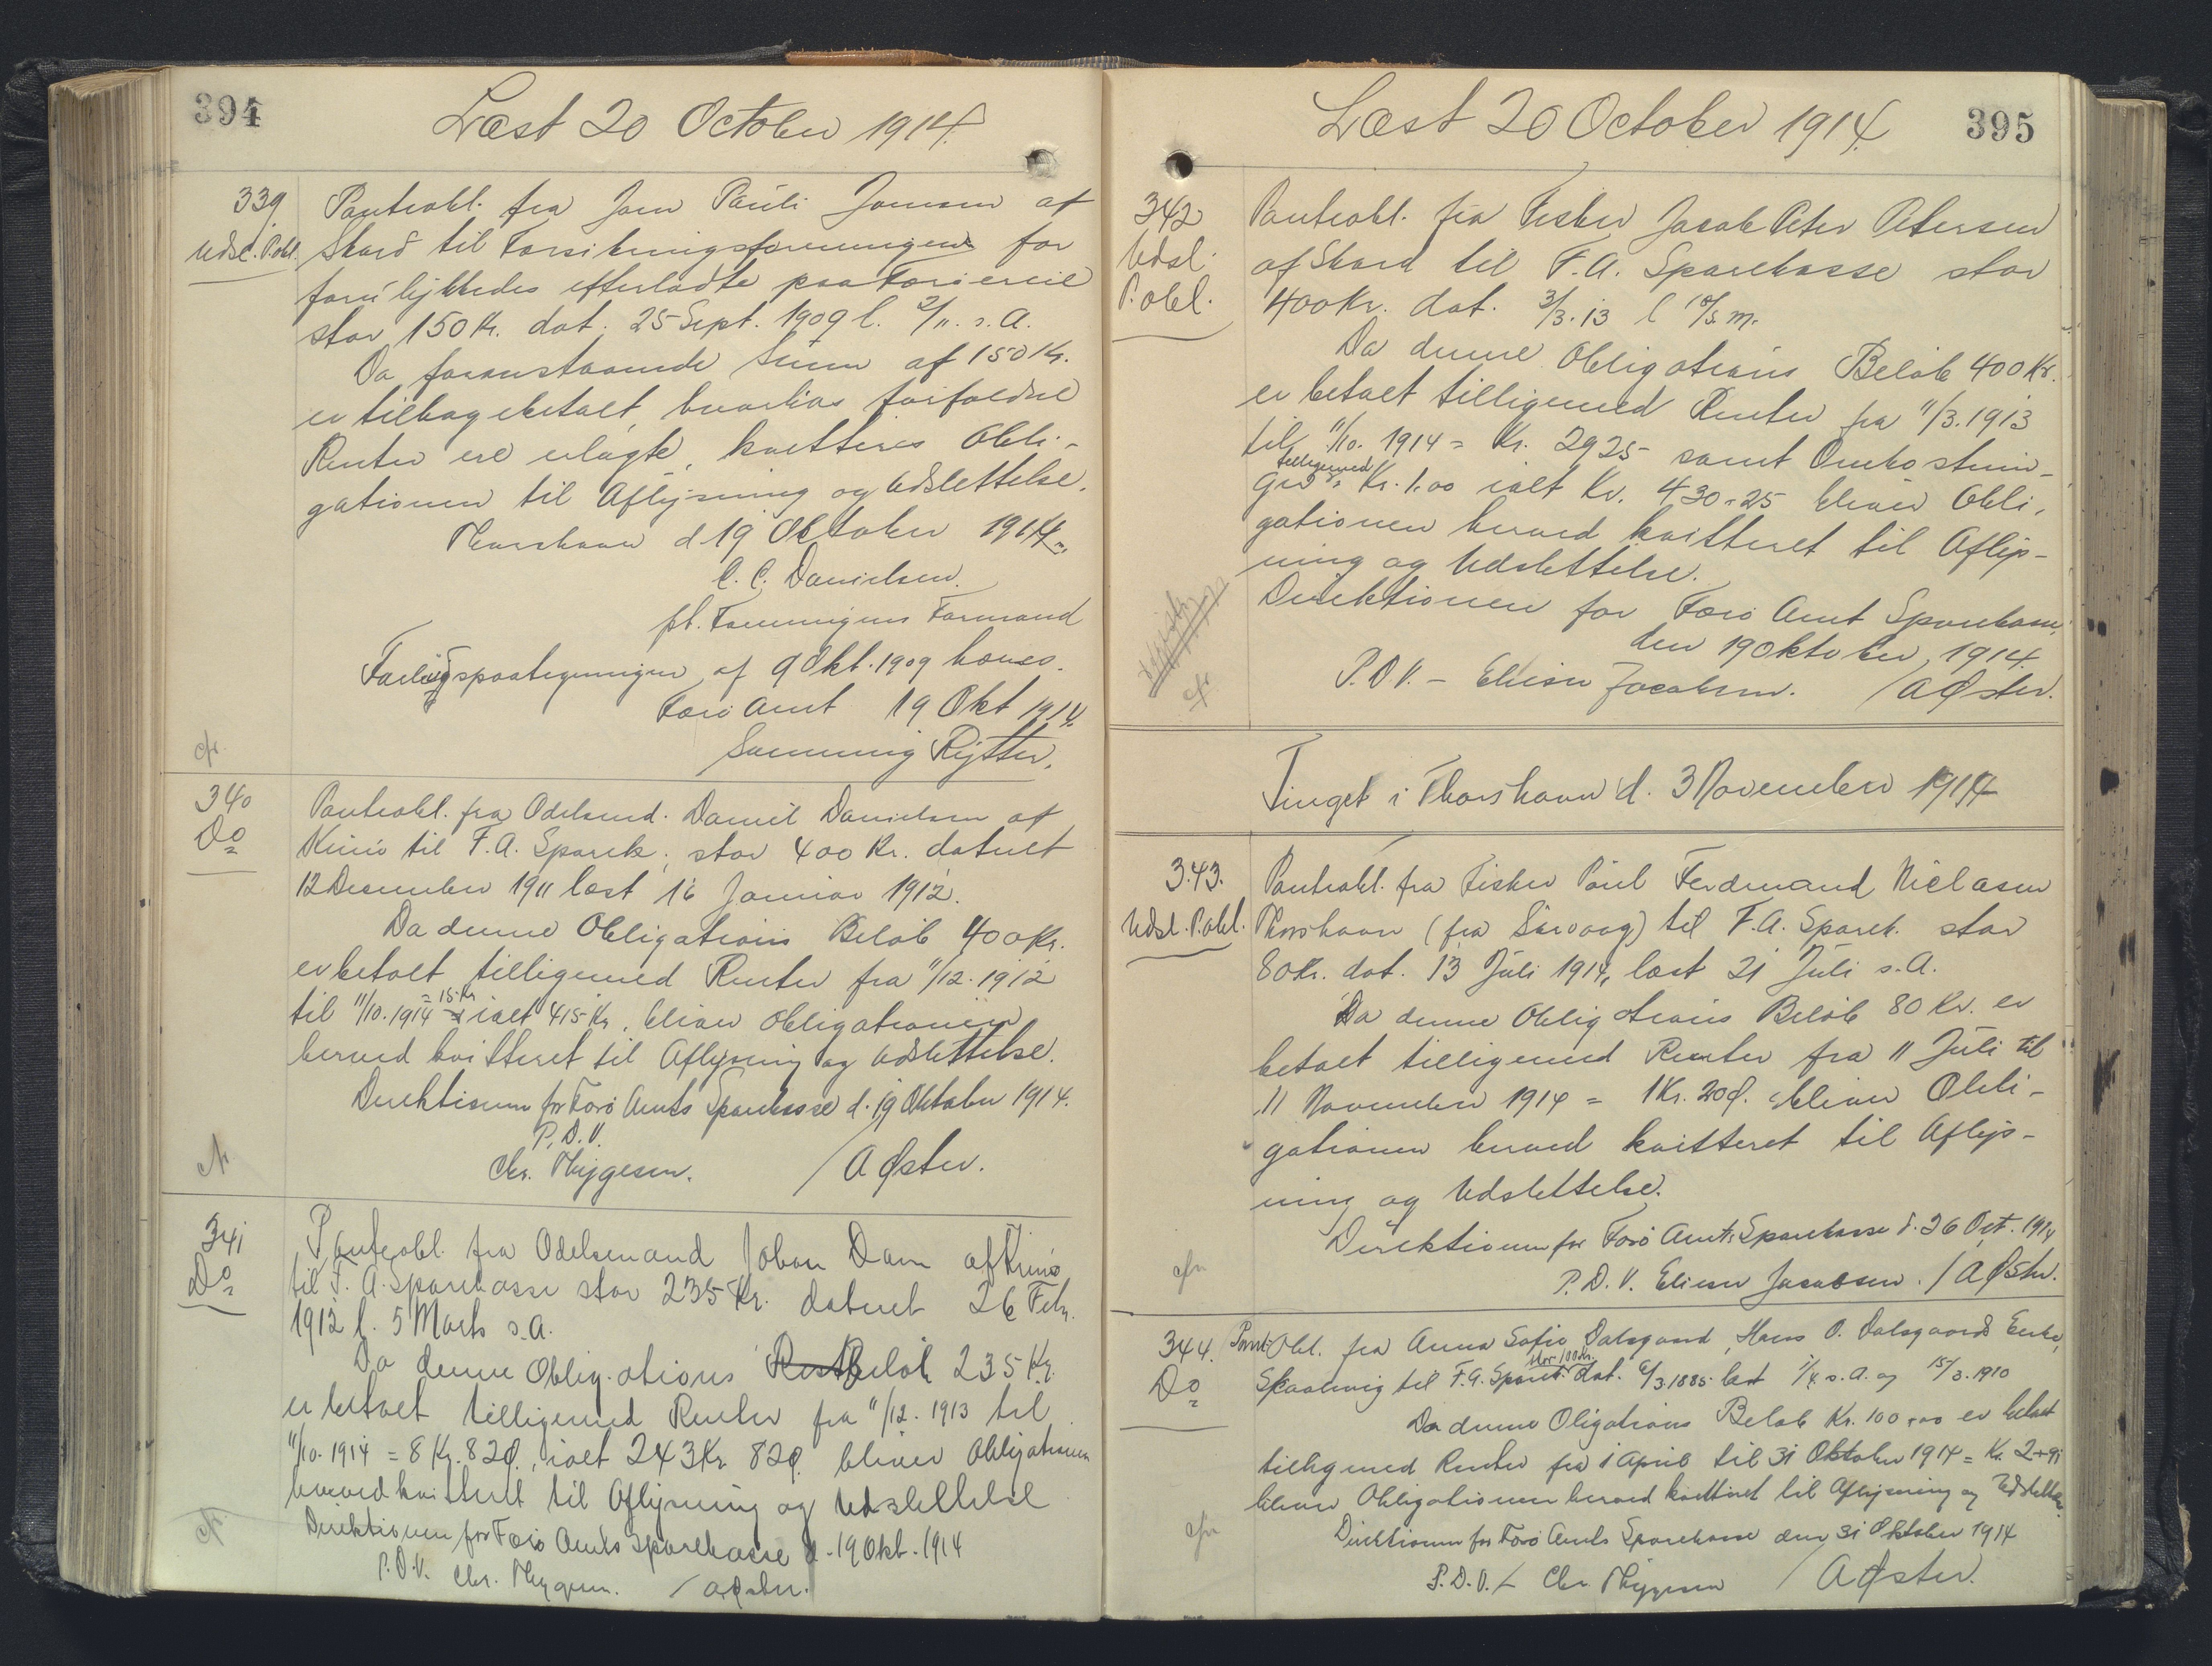 394
Læst 20 October 1914.
339
Udsl. P.obl.
Panteobl. fra Joen Pauli Joensen af
Skard til Forsikringsforeningen for
forulykkedes efterladte paa Færøerne
stor 150 Kr. dat. 25 Sept. 1909 l. 2/11. s.A.
Da foranstaaende Sum af 150 Kr.
er tilbagebetalt, hvorhos forfaldne
Renter ere erlagte, kvitteres Obli-
gationen til Aflysning og Udslettelse.
Thorshavn d. 19 Oktober 1914
C. C. Danielsen.
pt. Foreningens Formand
af 9 Okt. 1909 hæves.
Færø Amt 19 Okt 1914.
Rytter.
cfr.
340
Do
Panteobl. fra Odelsmd. Daniel Danielsen af
Kunø til F.A. Sparek. stor 400 Kr. dateret
12 December 1911 læst 16 Januar 1912.
Da denne Obligations Beløb 400 Kr.
er betalt tilligemed Renter fra 11/12. 1912
til 11/10. 1914 = 15 Kr ialt 415 Kr, bliver Obligationen
herved kvitteret til Aflysning og Udslettelse.
Direktionen for Færø Amts Sparekasse d. 19 Oktober 1914.
P. D. V.
Chr. Thygesen. / A Øster.
cfr
341
Do
Panteobl. fra Odelsmand Johan Dam af Kunø
til F. A. Sparekasse stor 235 Kr. dateret 26 Febr.
1912 l. 5 Marts s.A.
Da denne Obligations RestBeløb 235 Kr.
er betalt tilligemed Renter fra 11/12. 1913 til
11/10. 1914 = 8 Kr. 82 Ø., ialt 243 Kr 82 Ø. bliver Obligationen
herved kvitteret til Aflysning og Udslettelse
Direktionen for Færø Amts Sparekasse d. 19 Okt. 1914
P.D.V. Chr. Thygesen. / A Øster.
cfr
Læst 20 October 1914.
395
342
Udsl.
P.obl.
Panteobl. fra Fisker Jacob Peter Petersen
af Skard til F.A. Sparekasse stor
400 Kr. dat. 3/3. 13 l s. m.
Da denne Obligations Beløb 400 Kr.
er betalt tilligemed Renter fra 11/3. 1913
til 11/10. 1914 = Kr. 29 25 samt Omkostnin-
tilligemed
ger Kr. 1.00 ialt Kr. 430.25 bliver Obli-
gationen herved kvitteret til Aflys-
ning og Udslettelse.
Direktionen for Færø Amt Sparekasse,
den 19 Oktober, 1914.
P.D.V. - Eliesar Jacobsen. / A Øster.
cfr
Tinget i Thorshavn d. 3 November 1914
343.
Udsl. P.obl.
Panteobl. fra Fisker Poul Ferdinand Niclasen
Thorshavn (fra Sørvaag) til F.A. Sparek. stor
80 Kr. dat. 13 Juli 1914, læst 21 Juli s.A.
Da denne Obligations Beløb 80 Kr. er
betalt tilligemed Renter fra 11 Juli til
11 November 1914 = 1 Kr. 20 Ø. bliver Obli-
gationen herved kvitteret til Aflys-
ning og Udslettelse.
Direktionen for Færø Amts Sparekasse d. 26 Oct. 1914
P. D. V. Eliesar Jacobsen. / A Øster.
cfr
344.
Do
Pant Obl. fra Anna Sofie Dalsgaard, Hans O. Dalsgaards Enke,
stor 100 Kr.
Skaalevig til F.A. Sparek. dat. 6/3 1885 læst 1/4 s.A. og 15/3. 1910
Da denne Oligations Beløb Kr. 100,00 er betalt
tilligemed Renter fra 1 April til 31 Oktober 1914 = Kr. 2
bliver Obligationen herved kvitteret til Aflysning og Udslettelse.
Direktionen for Færø Amts Sparekasse den 31 Oktober 1914
P. D. V. / Chr Thygesen / A Øster.
cfr